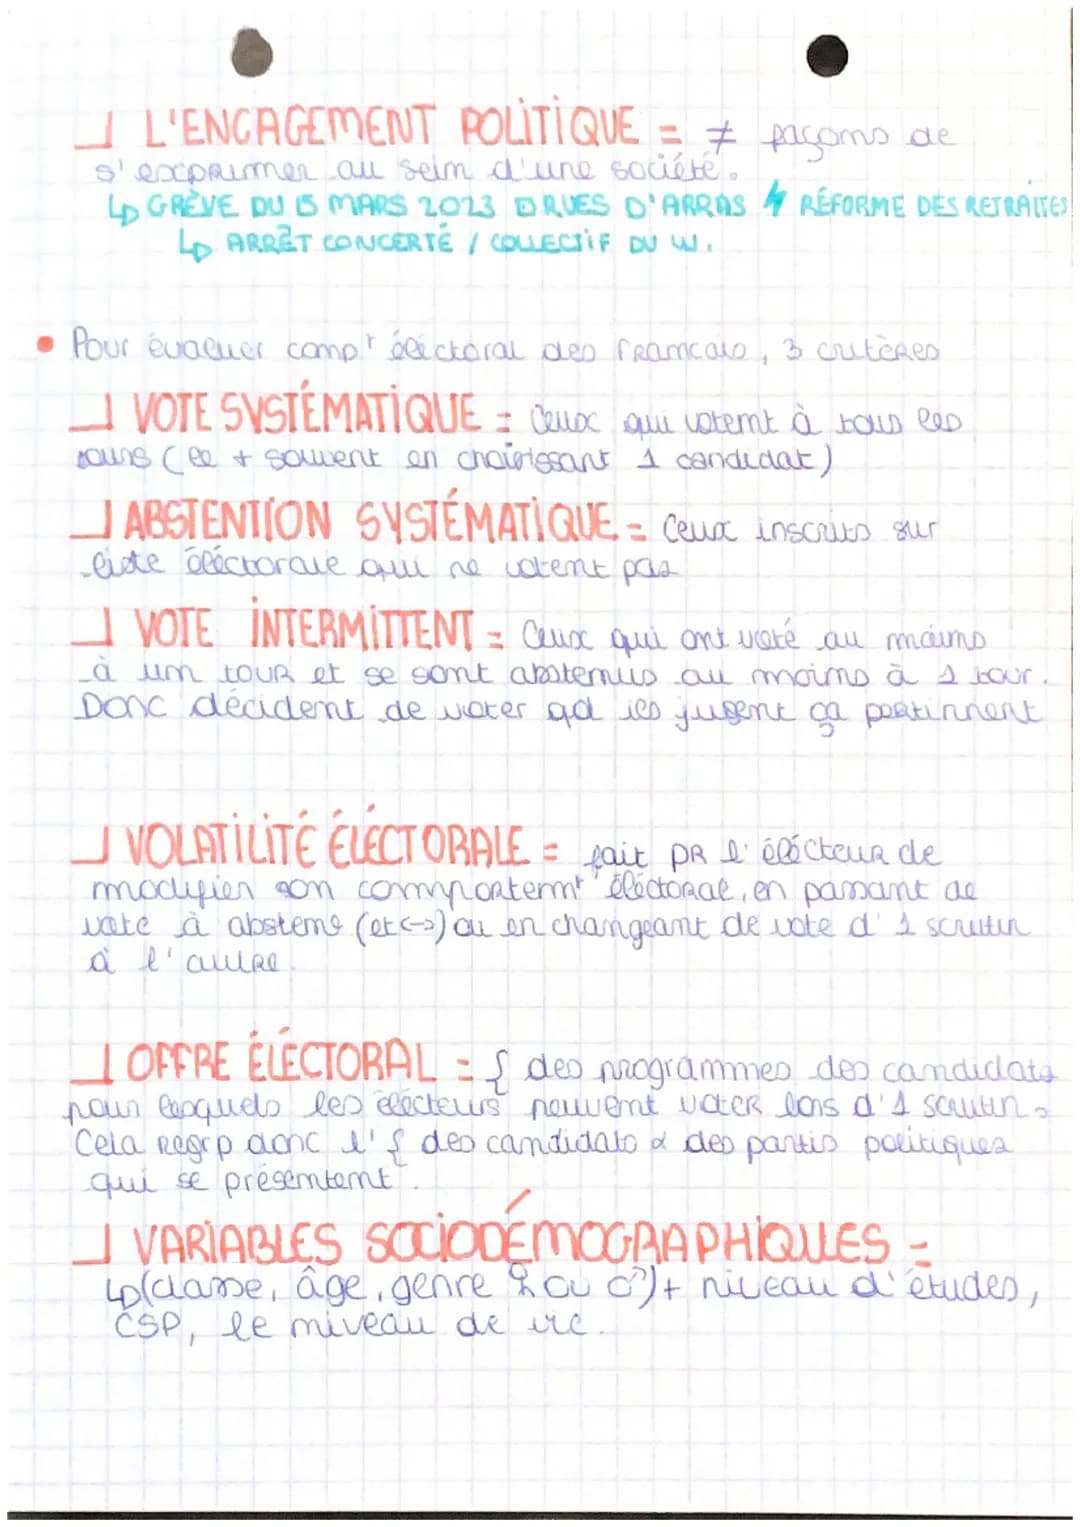 L'ENGAGEMENT POLITIQUE = ≠ façons de
s'exprimer au sein d'une société.
↳ GRÈVE DU 15 MARS 2023 RUES D'ARRAS ↯ RÉFORME DES RETRAITES
↳ ARRÊT CONCERTÉ / COLLECTIF DU W.
• Pour évaluer comp^t éléctoral des francais, 3 critères
VOTE SYSTÉMATIQUE = Ceux qui votent à tous les
tours (le + souvent en choisissant 1 candidat)
ABSTENTION SYSTÉMATIQUE = Ceux inscrits sur
liste éléctorale qui ne votent pas
VOTE INTERMITTENT = Ceux qui ont voté au moins
à un tour et se sont abstenus au moins à 1 tour.
Donc décident de voter qd ils jugent ça pertinnent
VOLATILITÉ ÉLÉCTORALE = fait PR l'élécteur de
modifier son comportem^t éléctoral, en passant de
vote à abstent° (et ↔) ou en changeant de vote d'1 scrutin
à l'autre.
OFFRE ÉLÉCTORAL = { des programmes des candidats
pour lesquels les élécteurs peuvent voter lors d'1 scrutin.
Cela regrp donc l'{ des candidats & des partis politiques
qui se présentent.
VARIABLES SOCIODÉMOGRAPHIQUES =
↳ (classe, âge, genre ♀ ou ♂) + niveau d'études,
CSP, le niveau de vie.